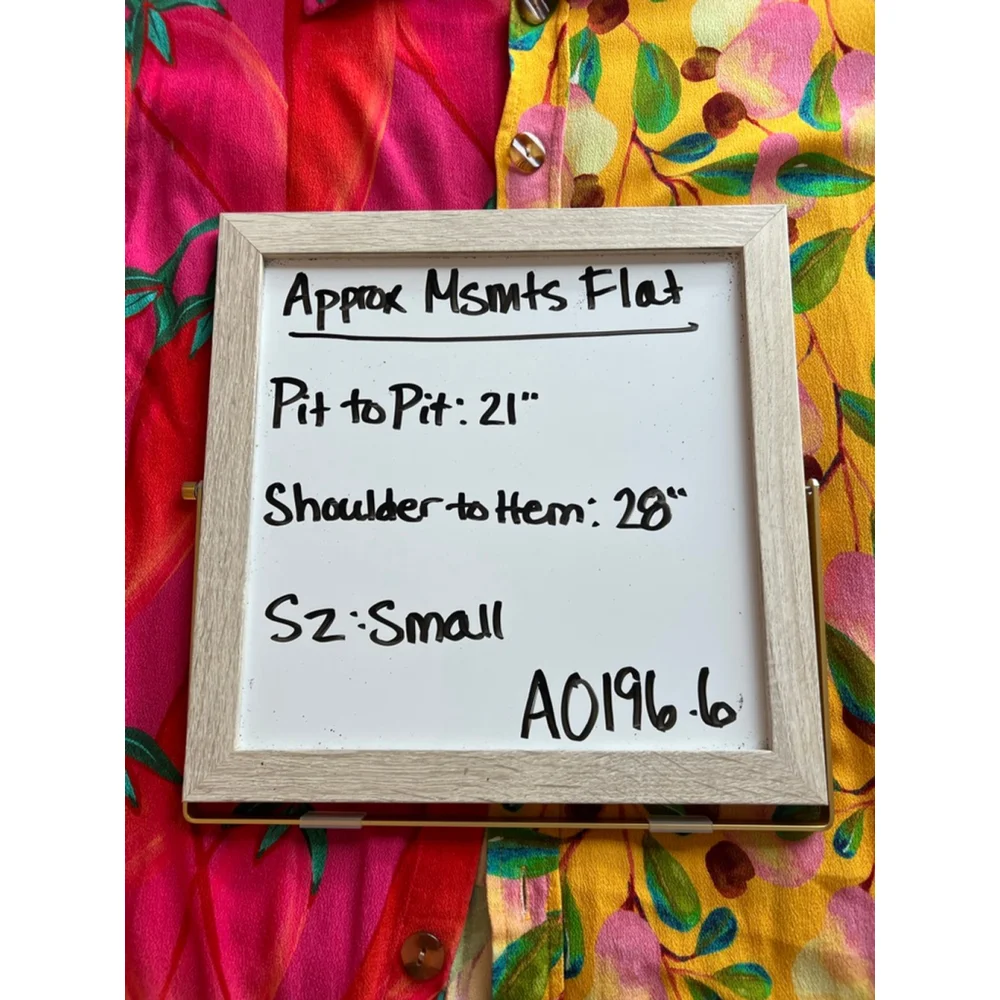 Approx Msmts Flat
Pit to Pit: 21"
Shoulder to Hem: 28"
Sz: Small
A0196.6